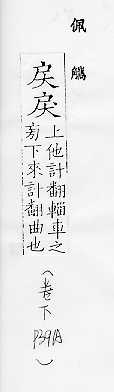 佩觿
戻戾
上他計翻輜車之
旁下來計翻曲也
(卷下 P39A)